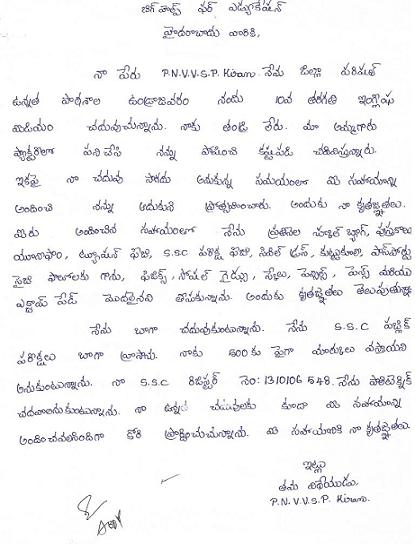 బిగ్ హెల్ప్ ఫర్ ఎడ్యుకేషన్
హైదరాబాదు వారికి,
నా పేరు P.N.V.V.S.P Kiran. నేను జిల్లా పరిషత్
ఉన్నత పాఠశాల ఉండ్రాజవరం నందు 10వ తరగతి ఇంగ్లీషు
మీడియం చదువుచున్నాను. నాకు తండ్రి లేరు. మా అమ్మగారు
ఫ్యాక్టరీలో పని చేసి నన్ను పోషించి కష్టపడి చదివిస్తున్నారు.
ఇకపై నా చదువు సాగదు అనుకున్న సమయంలో మీ సహాయాన్ని
అందించి నన్ను ఆదుకుని ప్రోత్సహించారు. అందుకు నా కృతజ్ఞతలు.
మీరు అందించిన సహాయంలో నేను స్కూల్ బ్యాగ్, పుస్తకాలు
యూనిఫాం, ట్యూషన్ ఫీజు, S.SC పరీక్ష ఫీజు, సివిల్ డ్రస్, కుట్టుకూలి, పాస్‌పోర్టు
సైజు ఫొటోలకు గాను, ఫిజిక్స్, సోషల్ గైడ్లు, స్కేలు, పెన్సిల్స్, పెన్స్ మరియు
ఎగ్జామ్ పేడ్ మొదలైనవి తీసుకున్నాను. అందుకు కృతజ్ఞతలు తెలుపుతున్నాను
నేను బాగా చదువుకుంటున్నాను. నేను S.S.C పబ్లిక్
పరీక్షలు బాగా వ్రాసాను. నాకు 500కు పైగా మార్కులు వస్తాయని
అనుకుంటున్నాను. నా S.S.C రిజిస్టర్ నెం: 1310106 548. నేను పాలిటెక్నిక్
చదవాలనుకుంటున్నాను. నా ఉన్నత చదువులకు కూడా మీ సహాయాన్ని
అందించవలసిందిగా కోరి ప్రార్థించుచున్నాను. మీ సహాయానికి నా కృతజ్ఞతలు.
ఇట్లు
తమ విధేయుడు.
P.N.V.V.S.P Kiran.